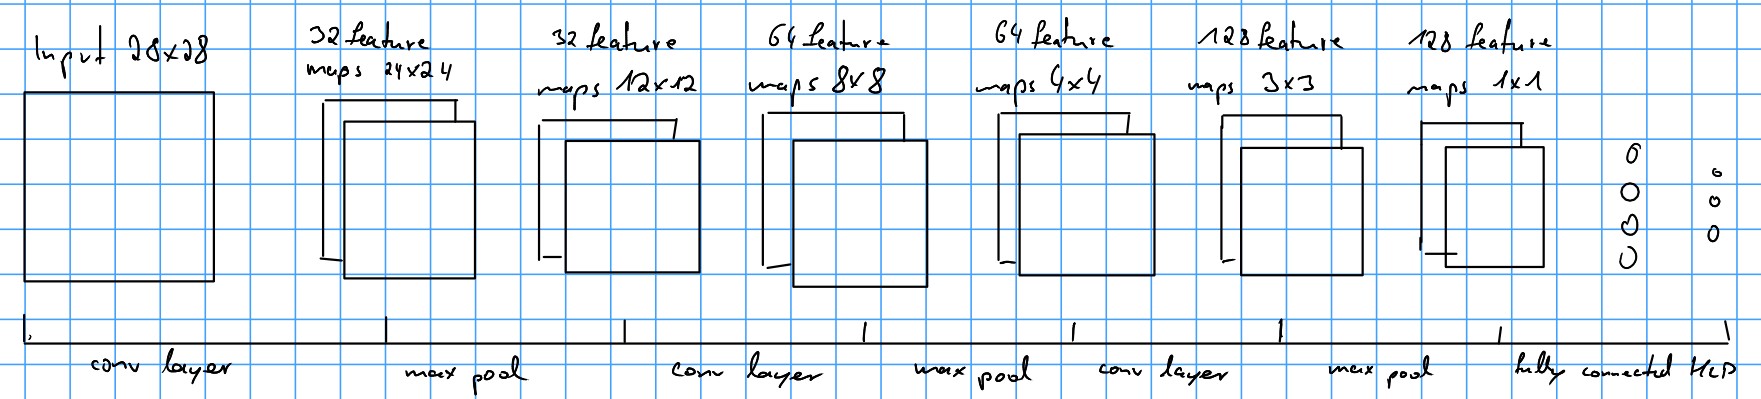 Input 28x28
32 feature
maps 24x24
32 feature
maps 12x12
64 feature
maps 8x8
64 feature
maps 4x4
128 feature
maps 3x3
128 feature
maps 1x1
conv layer
max pool
conv layer
max pool
conv layer
max pool
fully connected MLP